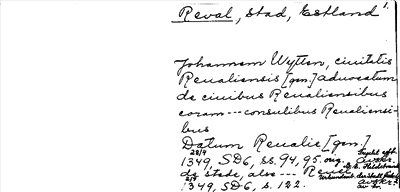 Reval, stad, Estland 1.
Johannem Wytten, ciuitatis
Reualiensis [gen.] aduocatum
de ciuibus Reualiensibus
coram --- consulibus Reualiensi-
bus
Datum Reualie [gen.]
28/9
1349, SD6, ss. 94, 95. orig.
de stede, also --- Reuele
2/9
1349, SD6, s. 122.